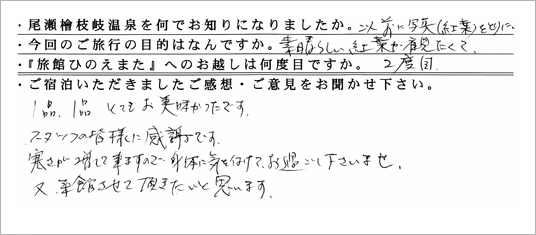 ・尾瀬檜枝岐温泉を何でお知りになりましたか。以前に写真(紅葉)を撮りに、
・今回のご旅行の目的はなんですか。素晴らしい紅葉が観たくて、
・『旅館ひのえまた』へのお越しは何度目ですか。2度目。
・ご宿泊いただきましたご感想・ご意見をお聞かせ下さい。
1品、1品 とてもお美味かったです。
スタッフの皆様に感謝です。
寒さが増して来ますので身体に気を付けて、お過ごし下さいませ。
又、来館させて頂きたいと思います。